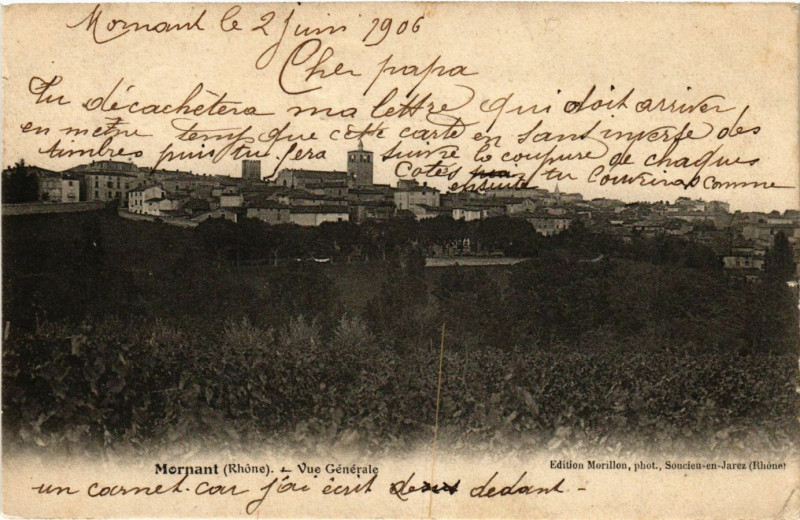 Mornant le 2 Juin 1906
Cher papa
Tu décachètera ma lettre qui doit arriver
en mètre temp que cette carte en sant inverse des
timbres puis tu fera suivre la coupure de chaques
Cotes
ensuite tu l'ouvrira comme
Mornant (Rhône). - Vue Générale
Edition Morillon, phot., Soucieu-en-Jarez (Rhône)
un carnet. car j'ai écrit dedant -